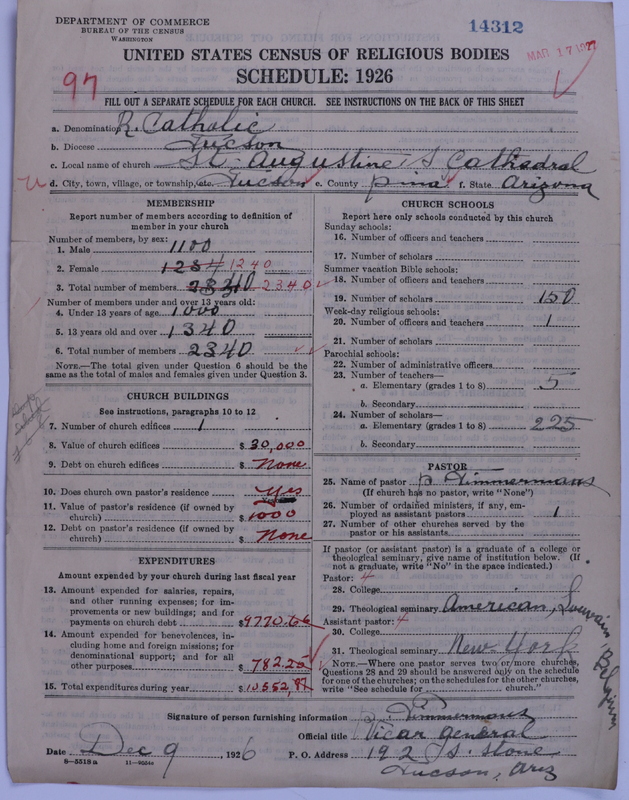 DEPARTMENT OF COMMERCE
BUREAU OF THE CENSUS
WASHINGTON
14312
MAR 17 1927
UNITED STATES CENSUS OF RELIGIOUS BODIES
SCHEDULE: 1926
97
FILL OUT A SEPARATE SCHEDULE FOR EACH CHURCH. SEE INSTRUCTIONS ON THE BACK OF THIS SHEET
a. Denomination R. Catholic
b. Diocese Tucson
c. Local name of church St. Augustine's Cathedral
d. City, town, village, or township, etc. Tucson e. County Pima f. State Arizona
MEMBERSHIP
Report number of members according to definition of member in your church
Number of members, by sex:
1. Male 1100
2. Female 1234 1240
3. Total number of members 2340 2340
Number of members under and over 13 years old:
4. Under 13 years of age 1000
5. 13 years old and over 1340
6. Total number of members 2340
NOTE.—The total given under Question 6 should be the same as the total of males and females given under Question 3.
CHURCH BUILDINGS
See instructions, paragraphs 10 to 12
7. Number of church edifices 1
8. Value of church edifices $30,000
9. Debt on church edifices $ None
10. Does church own pastor's residence Yes
11. Value of pastor's residence (if owned by church) $1000
12. Debt on pastor's residence (if owned by church) $ None
EXPENDITURES
Amount expended by your church during last fiscal year
13. Amount expended for salaries, repairs, and other running expenses; for improvements or new buildings; and for payments on church debt $9770.66
14. Amount expended for benevolences, including home and foreign missions; for denominational support; and for all other purposes $782.25
15. Total expenditures during year $10552,91
CHURCH SCHOOLS
Report here only schools conducted by this church
Sunday schools:
16. Number of officers and teachers
17. Number of scholars
Summer vacation Bible schools:
18. Number of officers and teachers
19. Number of scholars 150
Week-day religious schools:
20. Number of officers and teachers 1
21. Number of scholars
Parochial schools:
22. Number of administrative officers
23. Number of teachers—
a. Elementary (grades 1 to 8) 5
b. Secondary
24. Number of scholars—
a. Elementary (grades 1 to 8) 225
b. Secondary
PASTOR
25. Name of pastor P Timmermans
(If church has no pastor, write "None")
26. Number of ordained ministers, if any, employed as assistant pastors 1
27. Number of other churches served by the pastor or his assistants
If pastor (or assistant pastor) is a graduate of a college or theological seminary, give name of institution below. (If not a graduate, write "No" in the space indicated.)
Pastor: 4
28. College
29. Theological seminary American, Louvain, Belgium
Assistant pastor: 4
30. College
31. Theological seminary New York
NOTE.—Where one pastor serves two or more churches, Questions 28 and 29 should be answered only on the schedule for one of the churches; on the schedules for the other churches, write "See schedule for church."
Signature of person furnishing information P. Timmermans
Official title Vicar General
Date Dec 9, 1926 P. O. Address 192 S. Stone
Tucson, Ariz
6—5518 a 11—9554